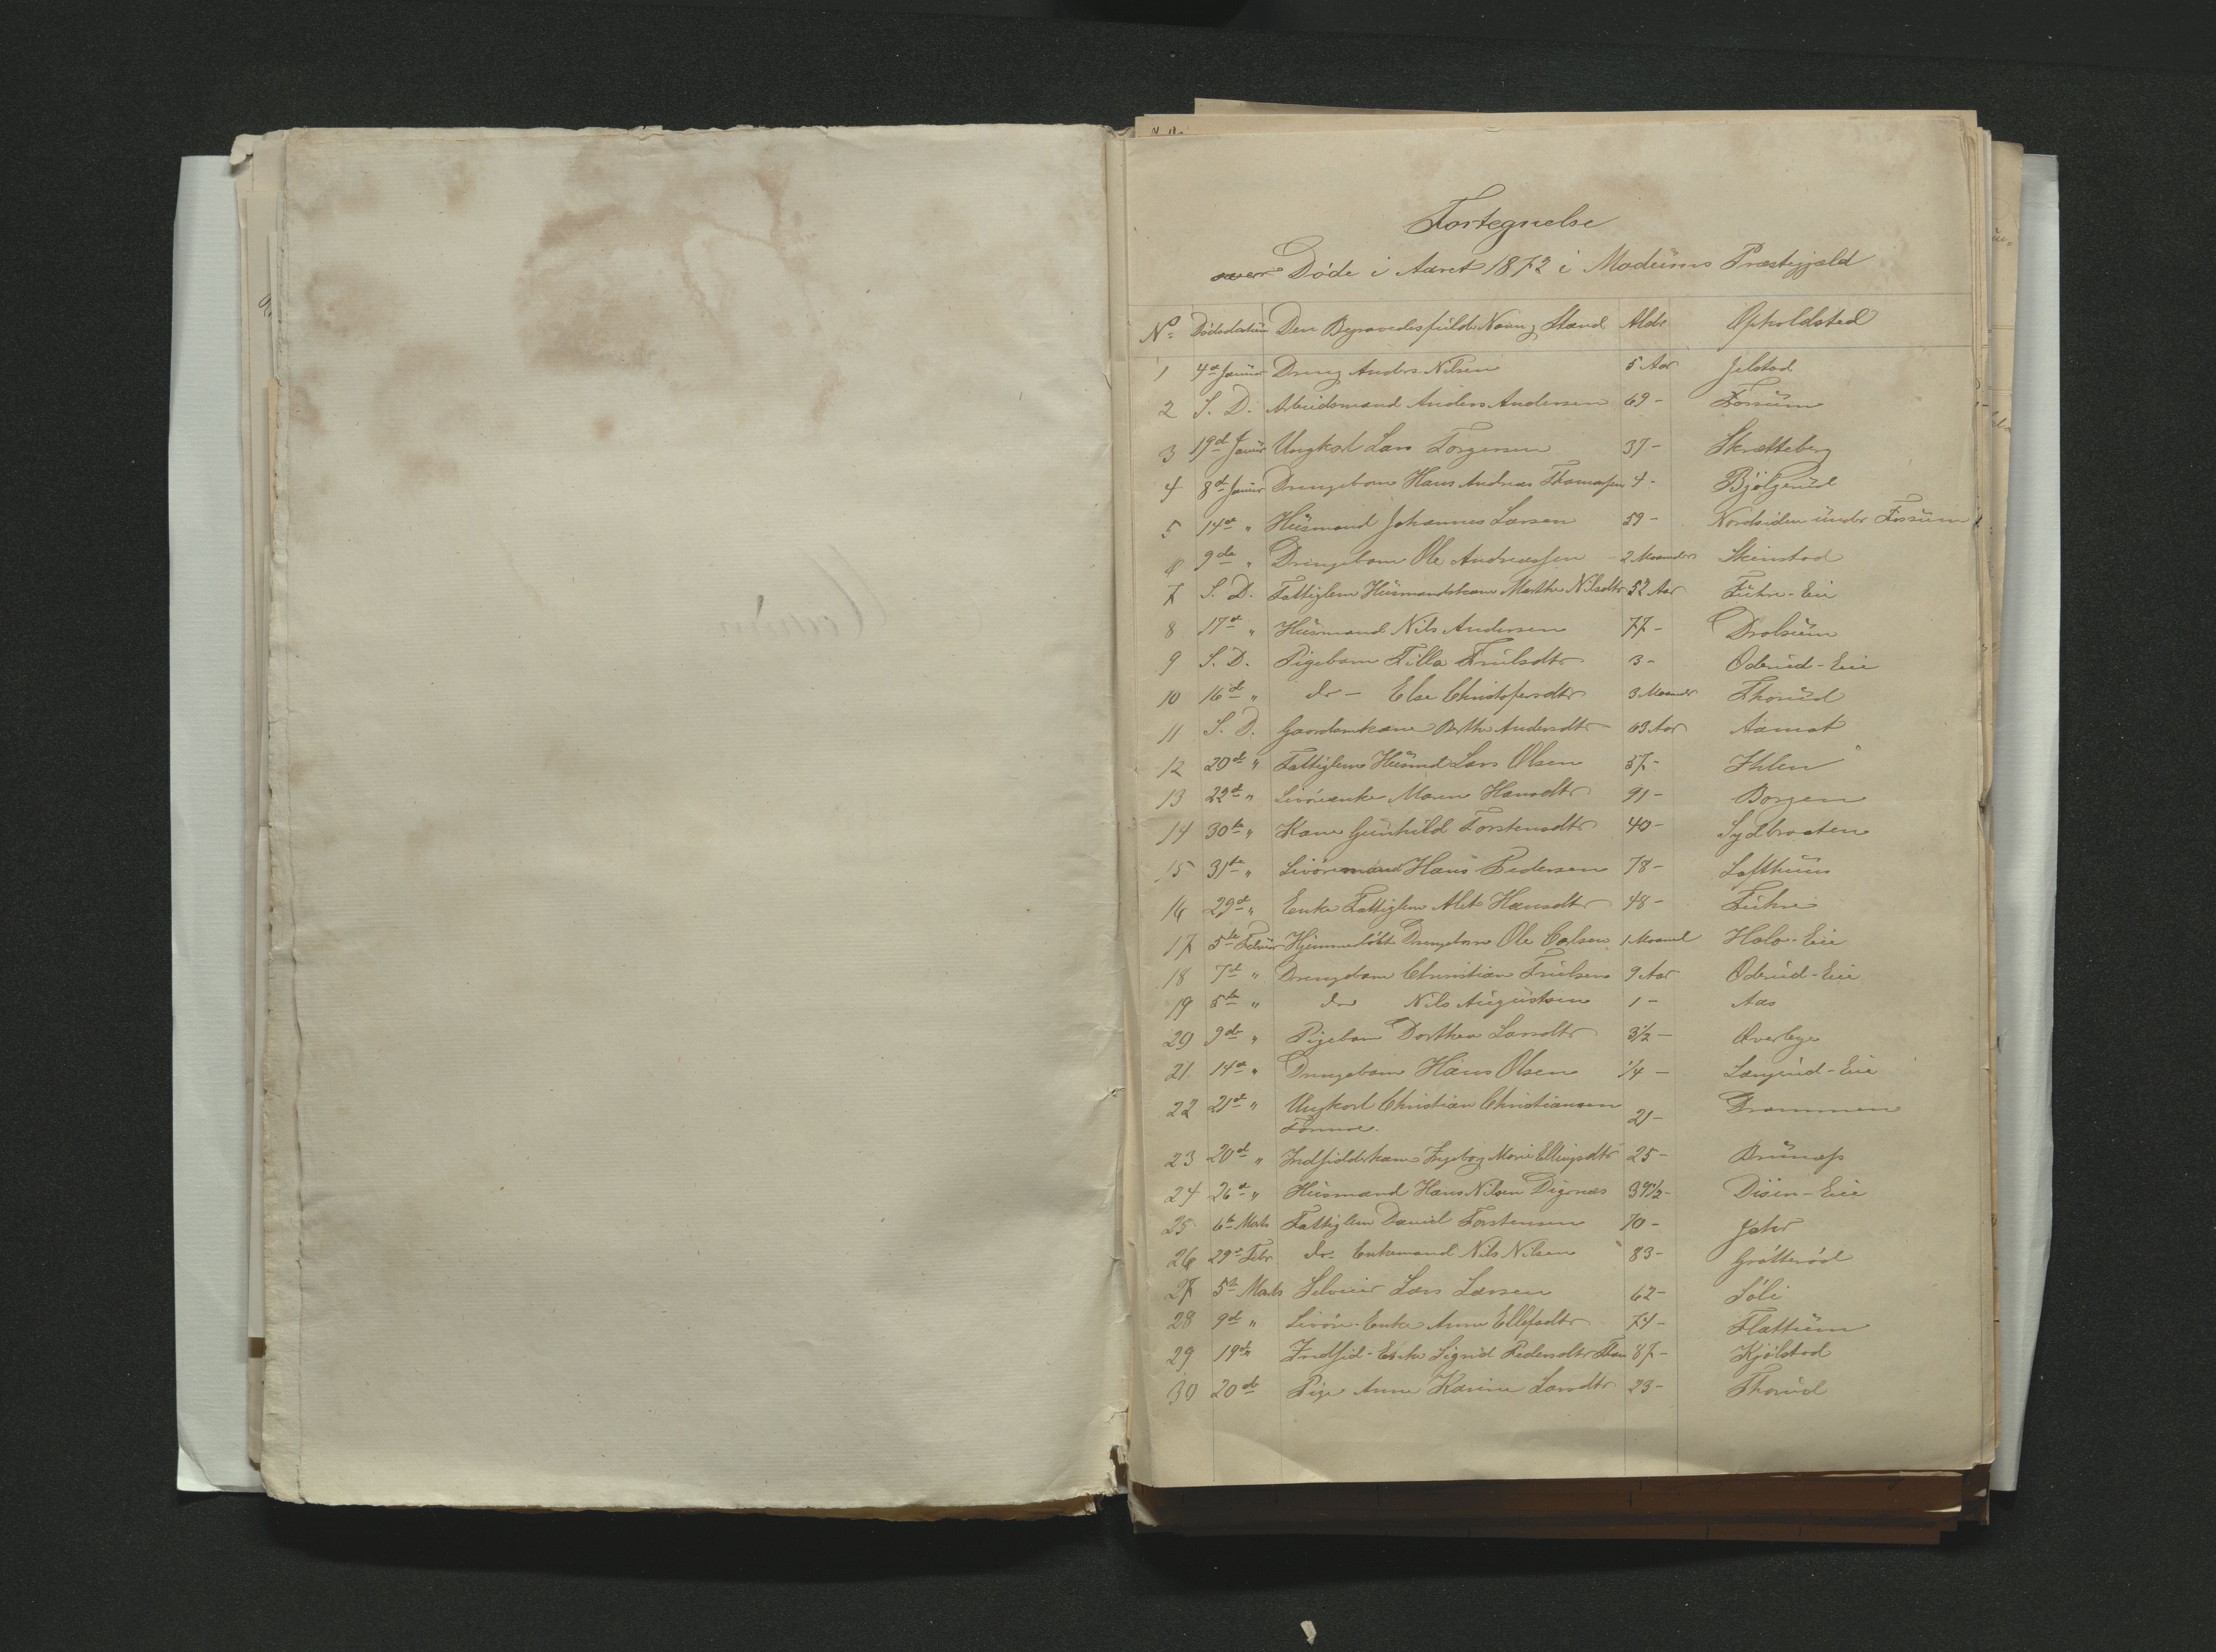 Fortegnelse
over Døde i Aaret 1872 i Modums Præstegjæld
No Dødsdatum Den Begravedes fulde Navn, Stand Alder Opholdsted
1 4de Januar Dreng Anders Nilsen 5 Aar Jelstad
2 S. D. Arbeidsmand Anders Andersen 69 - Fossum
3 19de Januar Ungkarl Lars Torgersen 37 - Skretteberg
4 8de Januar Drengebarn Hans Andreas Thomassen 4 - Bjölgerud
5 14de " Husmand Johannes Larsen 59 - Nordsiden under Fossum
6 9de " Drengebarn Ole Andreassen 2 Maaneder Skinstad
7 S. D. Fattiglem Husmandskone Marthe Nilsdtr 52 Aar Fuhre-Eie
8 17de " Husmand Nils Andersen 77 - Drolsum
9 S. D. Pigebarn Tilla Trulsdtr 3 - Oderud-Eie
10 16de " do - Else Christofersdtr 3 Maaneder Thorud
11 S. D. Gaardmkone Berthe Andersdtr 63 Aar Aamot
12 20de " Fattiglem Husmd Lars Olsen 57 - Ihlen
13 22de " Livöreenke Maren Hansdtr 91 - Borgen
14 30te " Kone Gunhild Torstensdtr 40 - Sydbraaten
15 31te " Livöremand Hans Pedersen 78 - Lofthuus
16 29de " Enke Fattiglem Alet Hansdtr 48 - Fuhre
17 5te Februar Hjemmedøbt Drengebarn Ole Carlsen 1 Maaned Hals-Eie
18 7de " Drengebarn Christian Trulsen 9 Aar Oderud-Eie
19 5te " do Nils Augustsen 1 - Aas
20 9de " Pigebarn Dorthea Larsdtr 3½ - Overbye
21 14de " Drengebarn Hans Olsen ¼ - Langerud-Eie
22 21de " Ungkarl Christian Christiansen 21 - Drammen
Fonnæ
23 20de " Indsidderkone Ingebog Marie Ellingsdtr 25 - Brunæs
24 26de " Husmand Hans Nilsen Digrnæs 39½ - Disen-Eie
25 6te Marts Fattiglem Daniel Torstensen 70 - Jahr
26 29de Febr do Enkemand Nils Nilsen 83 - Gråtterød
27 5te Marts Selveier Lars Larsen 62 - Löli
28 9de " Livöre-Enke Anne Ellefsdtr 71 - Flattum
29 19de " Indsid-Enke Sigrid Pedersdtr 87 - Kjølstad
30 20de Pige Anne Karine Larsdtr 23 - Thorud